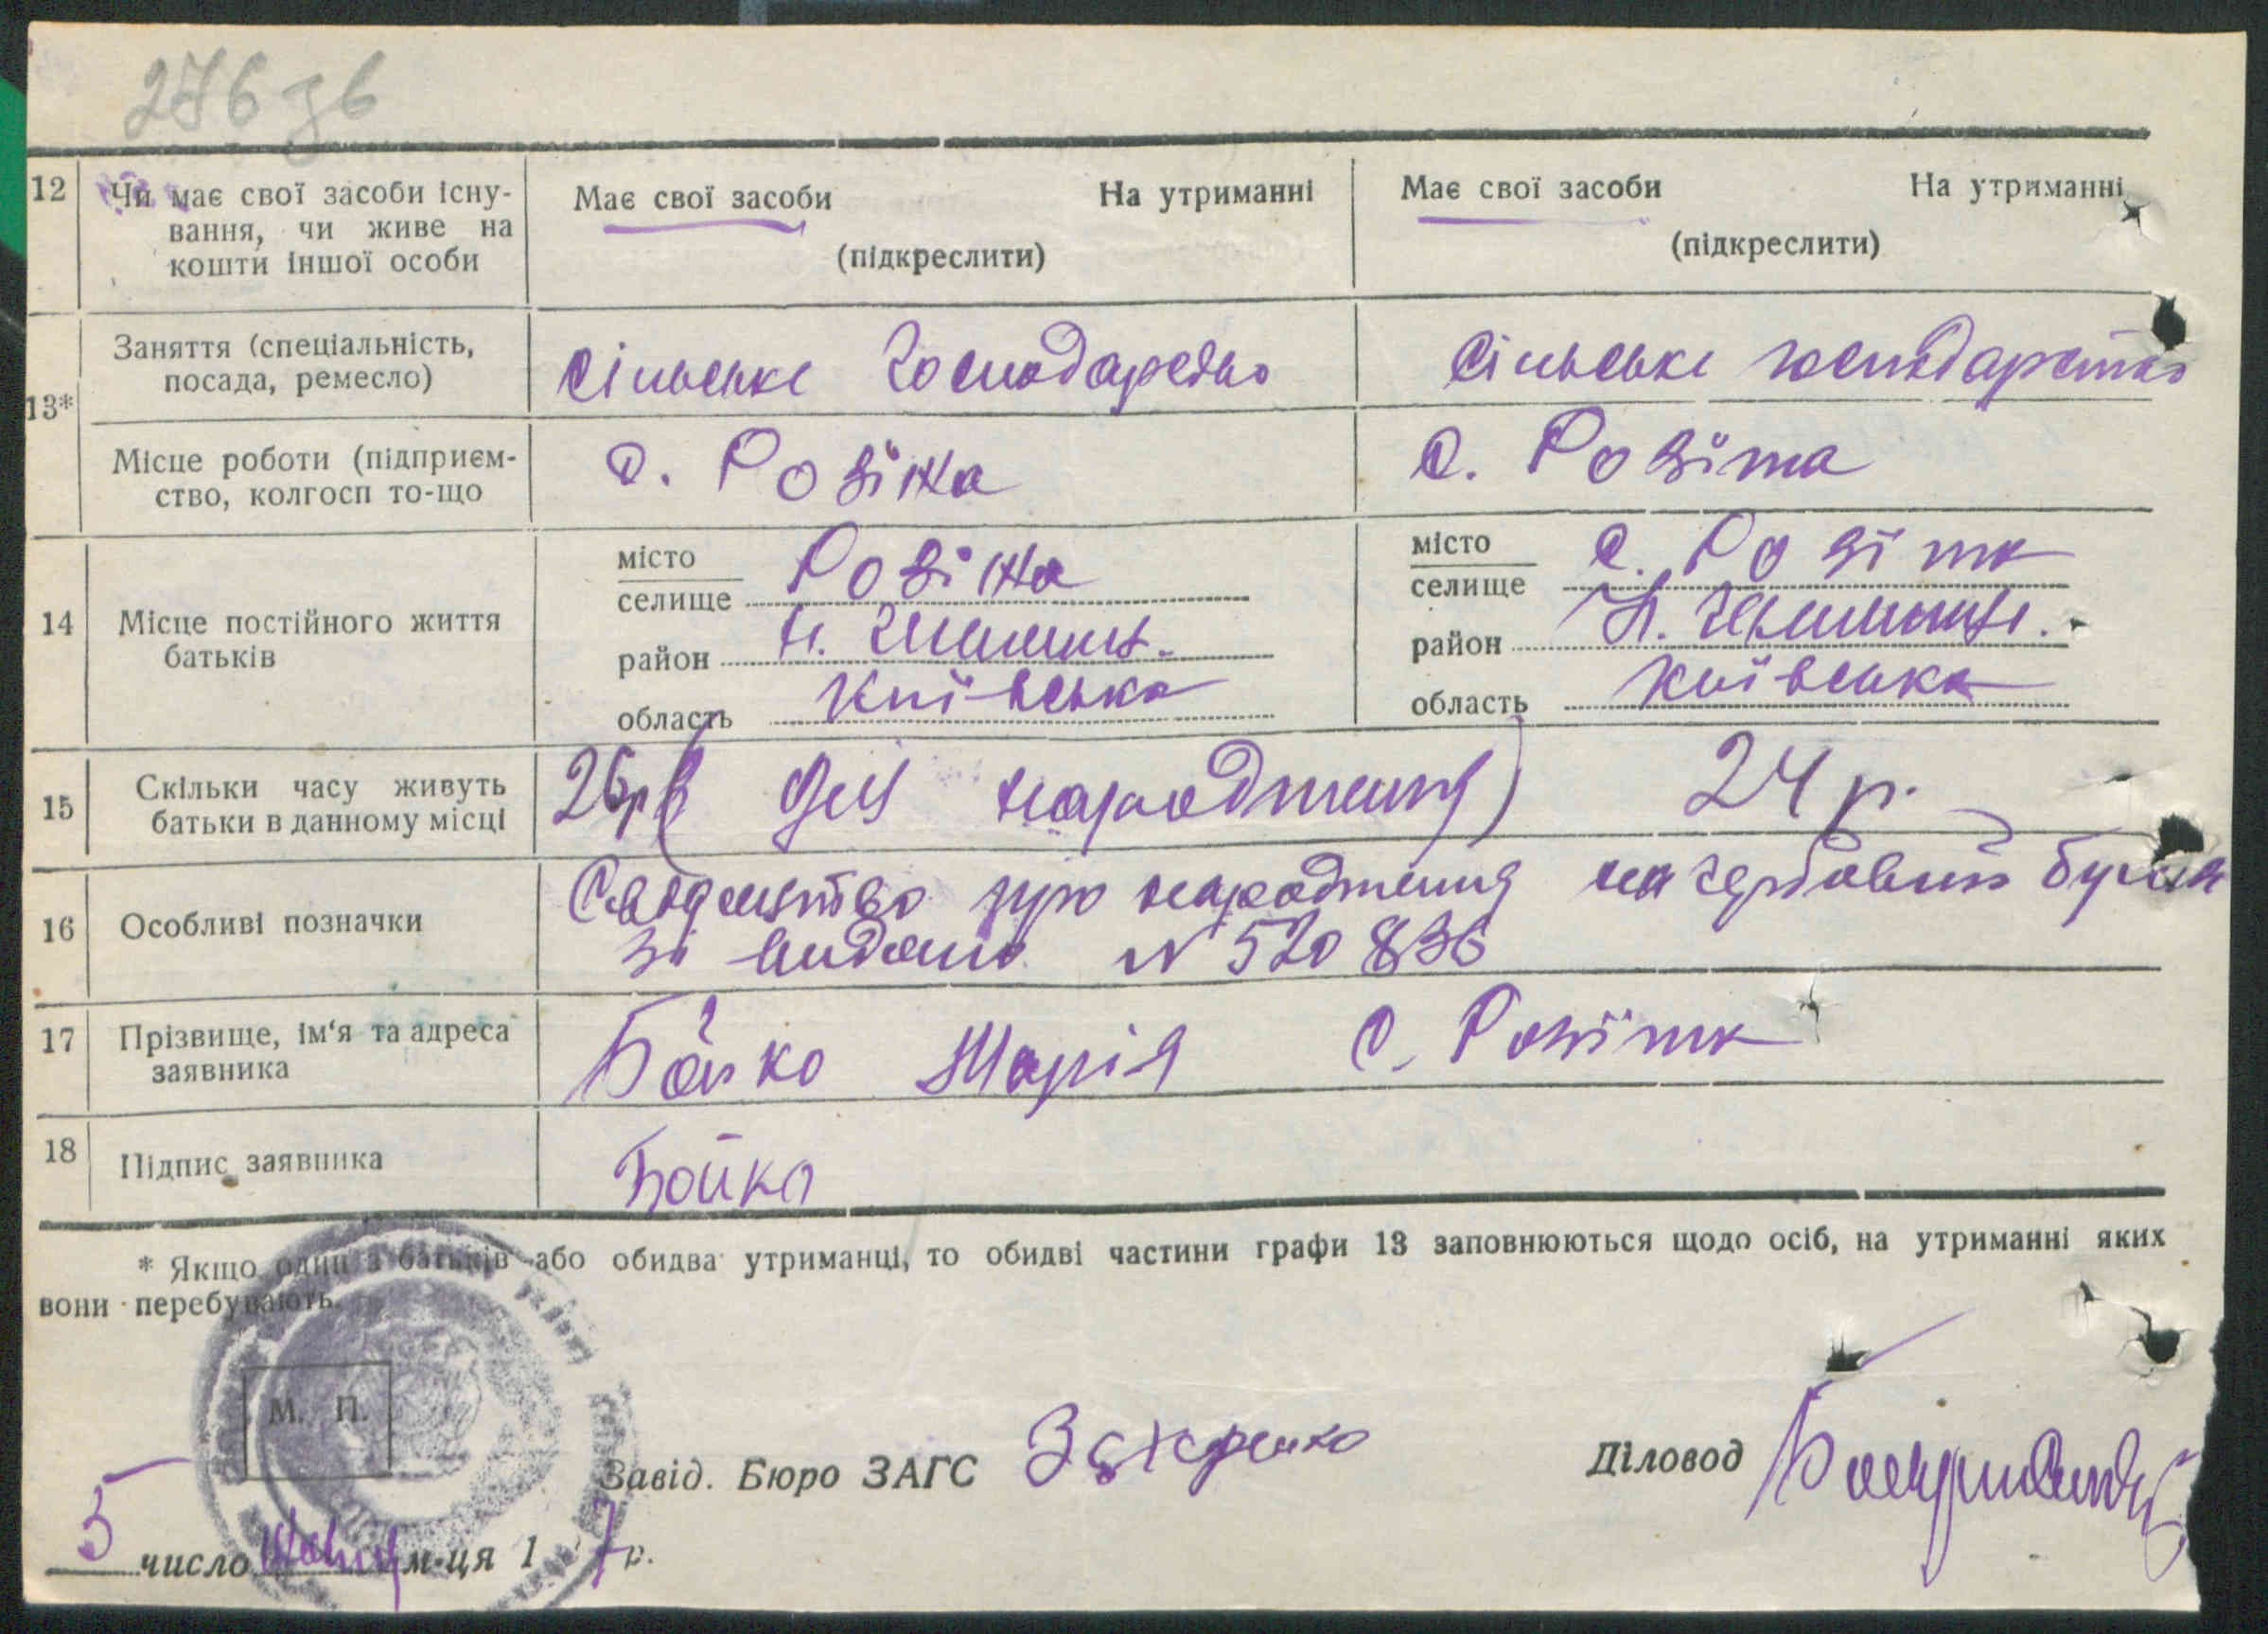 276 зв
12 Чи має свої засоби існу-
вання, чи живе на
кошти іншої особи
Має свої засоби На утриманні
(підкреслити)
Має свої засоби На утриманні
(підкреслити)
13*
Заняття (спеціальність,
посада, ремесло)
Сільське господарство
Сільське господарство
Місце роботи (підприєм-
ство, колгосп то-що
с. Розіжа
14 Місце постійного життя
батьків
місто
селище
район
область Київська
місто
селище с.
район
область Київська
15 Скільки часу живуть
батьки в данному місці
26 р (з дня народження)
24 р.
16 Особливі позначки
Свідоцтво про народження на гербовий
зі видано N 520836
17 Прізвище, ім'я та адреса
заявника
Бойко Марія с.
18 Підпис заявника
Бойко
* Якщо один з батьків або обидва утриманці, то обидві частини графи 13 заповнюються щодо осіб, на утриманні яких
вони перебувають.
М. П.
Завід. Бюро ЗАГС Захаренко
Діловод
5 число м-ця 1 7 р.